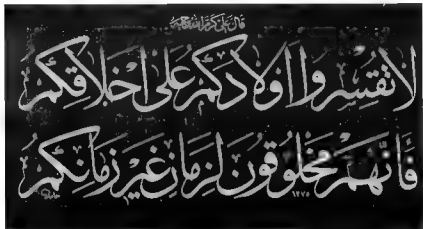 قال علي كرم الله وجهه
لا تقسروا اولادكم على اخلاقكم
فانهم مخلوقون لزمان غير زمانكم
١٢٧٥